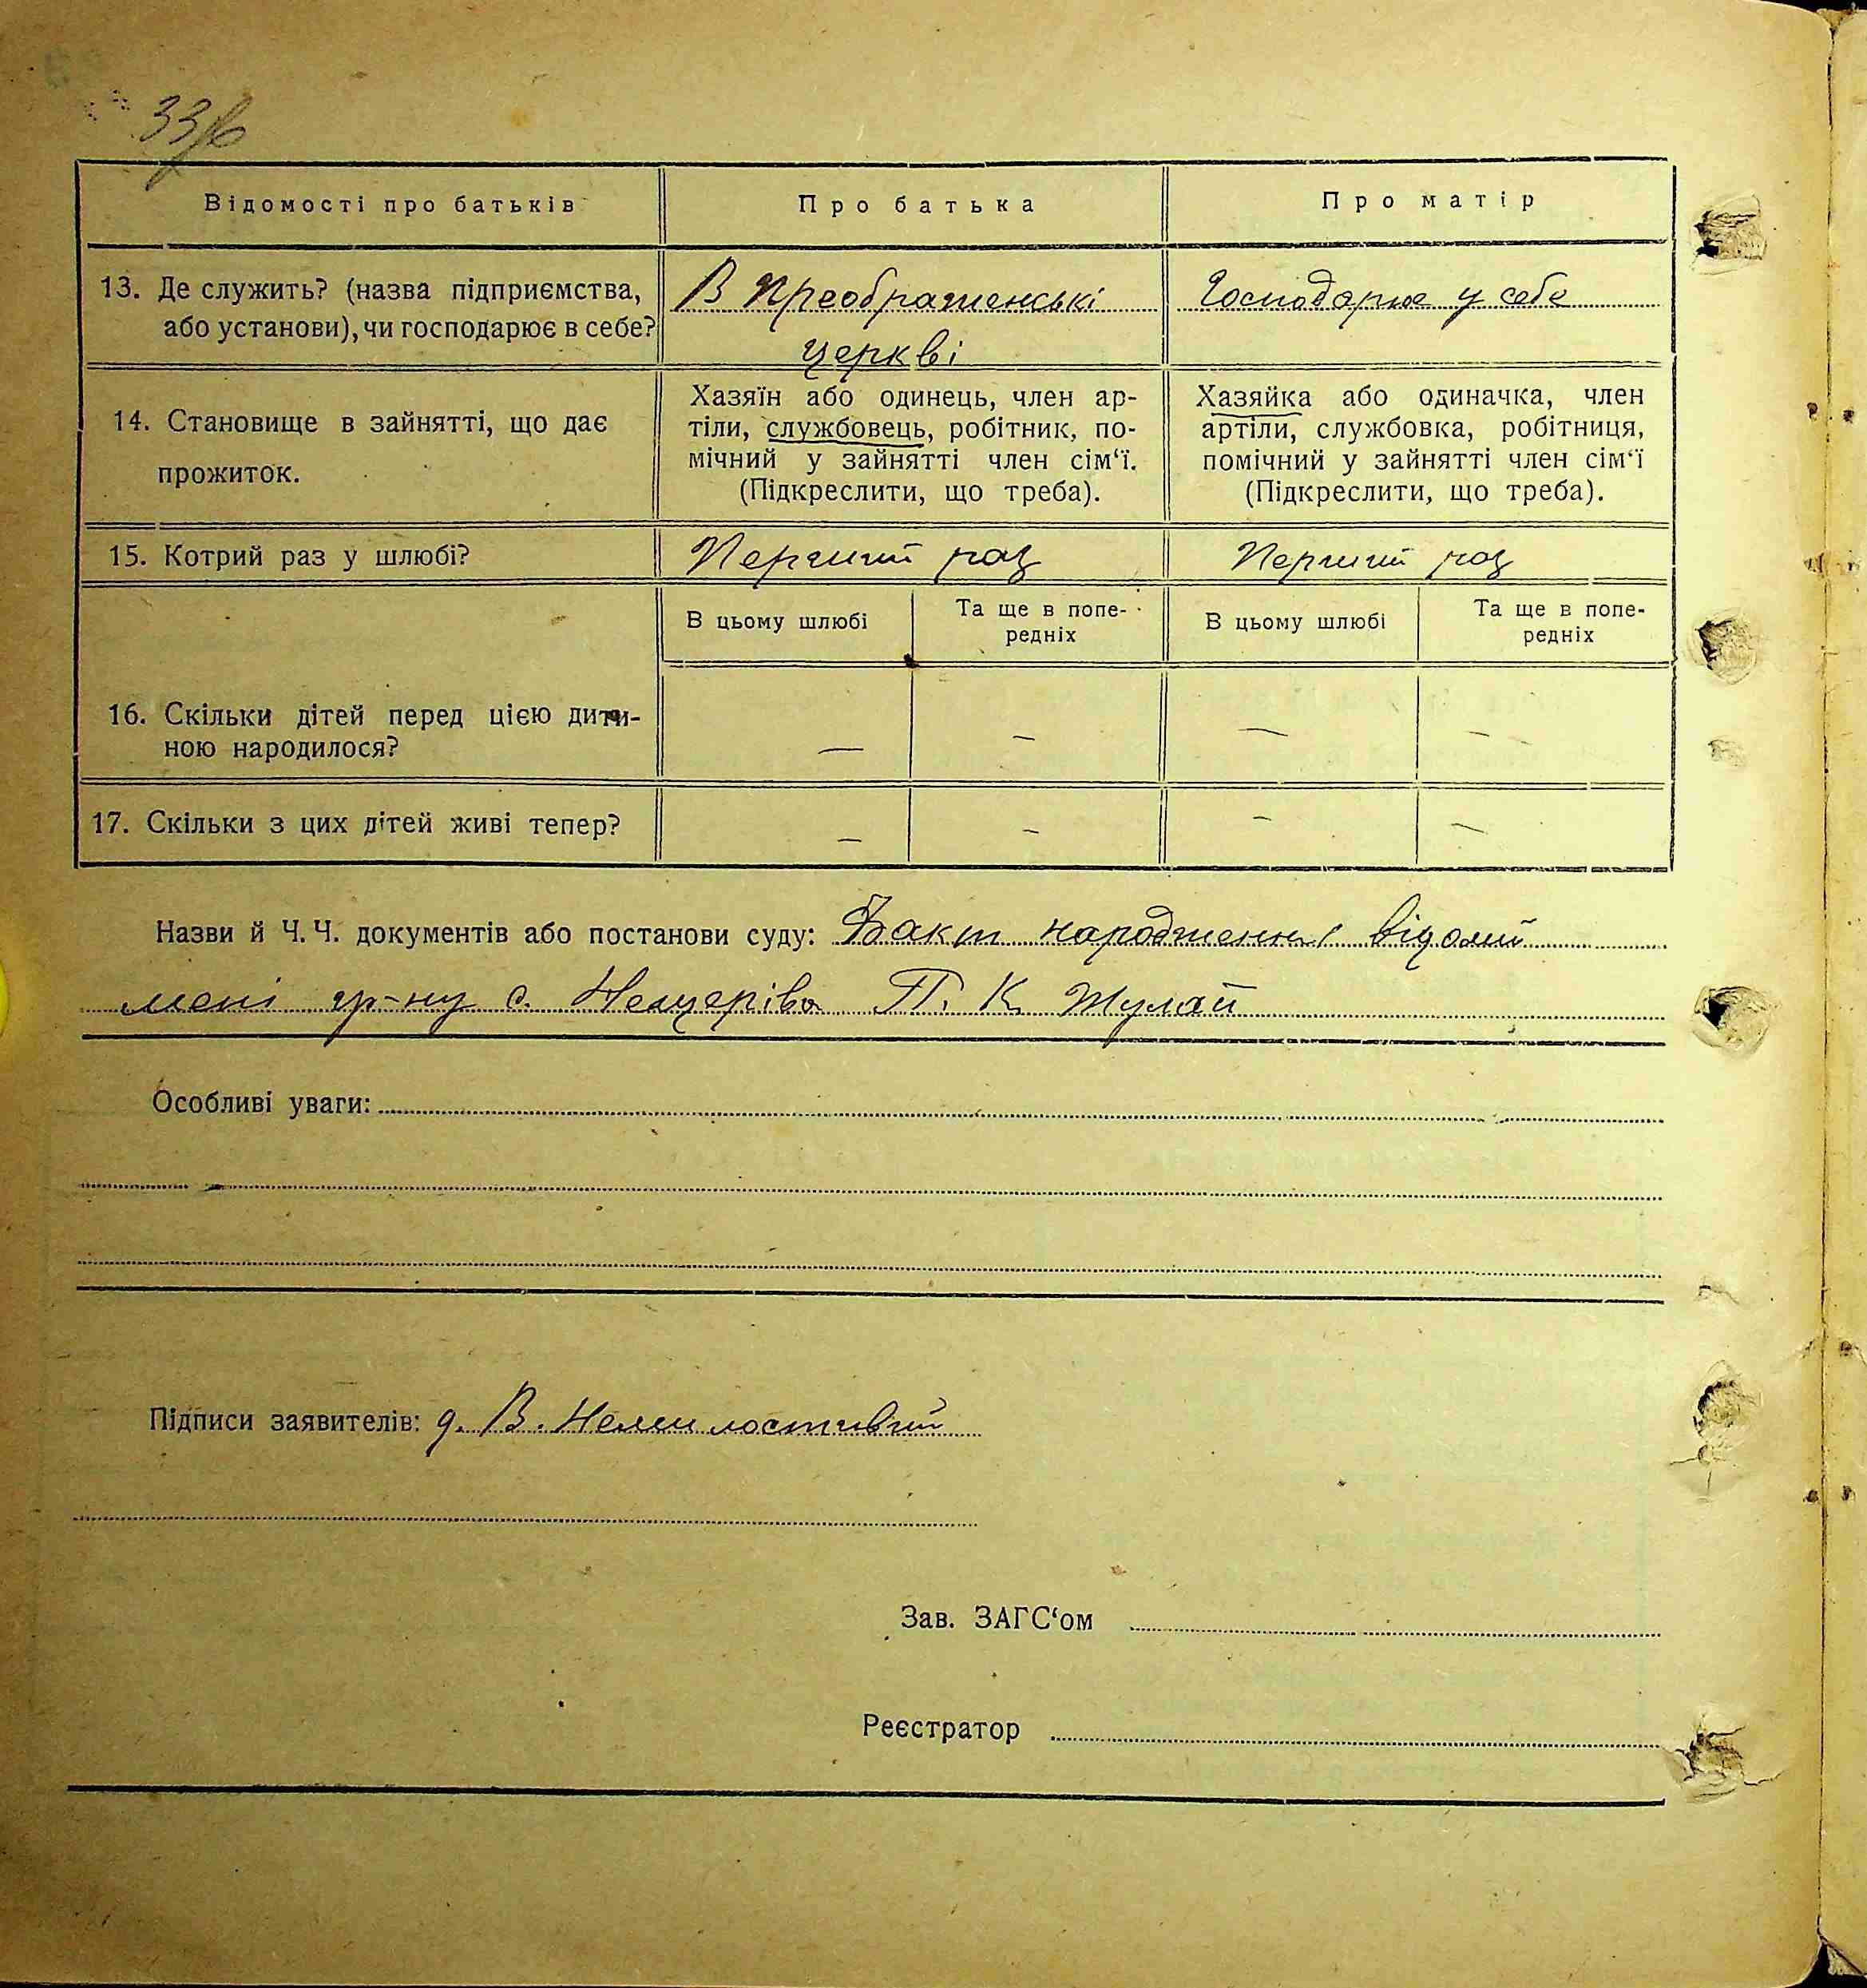 33/б
Відомості про батьків
Про батька
Про матір
13. Де служить? (назва підприємства,
або установи), чи господарює в себе?
В Преображенські
церкві
Господарює у себе
14. Становище в зайнятті, що дає
прожиток.
Хазяїн або одинець, член ар-
тіли, службовець, робітник, по-
мічний у зайнятті член сім‘ї.
(Підкреслити, що треба).
Хазяйка або одиначка, член
артіли, службовка, робітниця,
помічний у зайнятті член сім‘ї
(Підкреслити, що треба).
15. Котрий раз у шлюбі?
Перший раз
Перший раз
В цьому шлюбі
Та ще в попе-
редніх
В цьому шлюбі
Та ще в попе-
редніх
16. Скільки дітей перед цією дити-
ною народилося?
— — — —
17. Скільки з цих дітей живі тепер?
— — — —
Назви й Ч. Ч. документів або постанови суду: Факт народження відомий
мені гр-ну с. Нещерів П. К. Жулай
Особливі уваги:
Підписи заявителів: д. В. Немилостивий
Зав. ЗАГС‘ом
Реєстратор